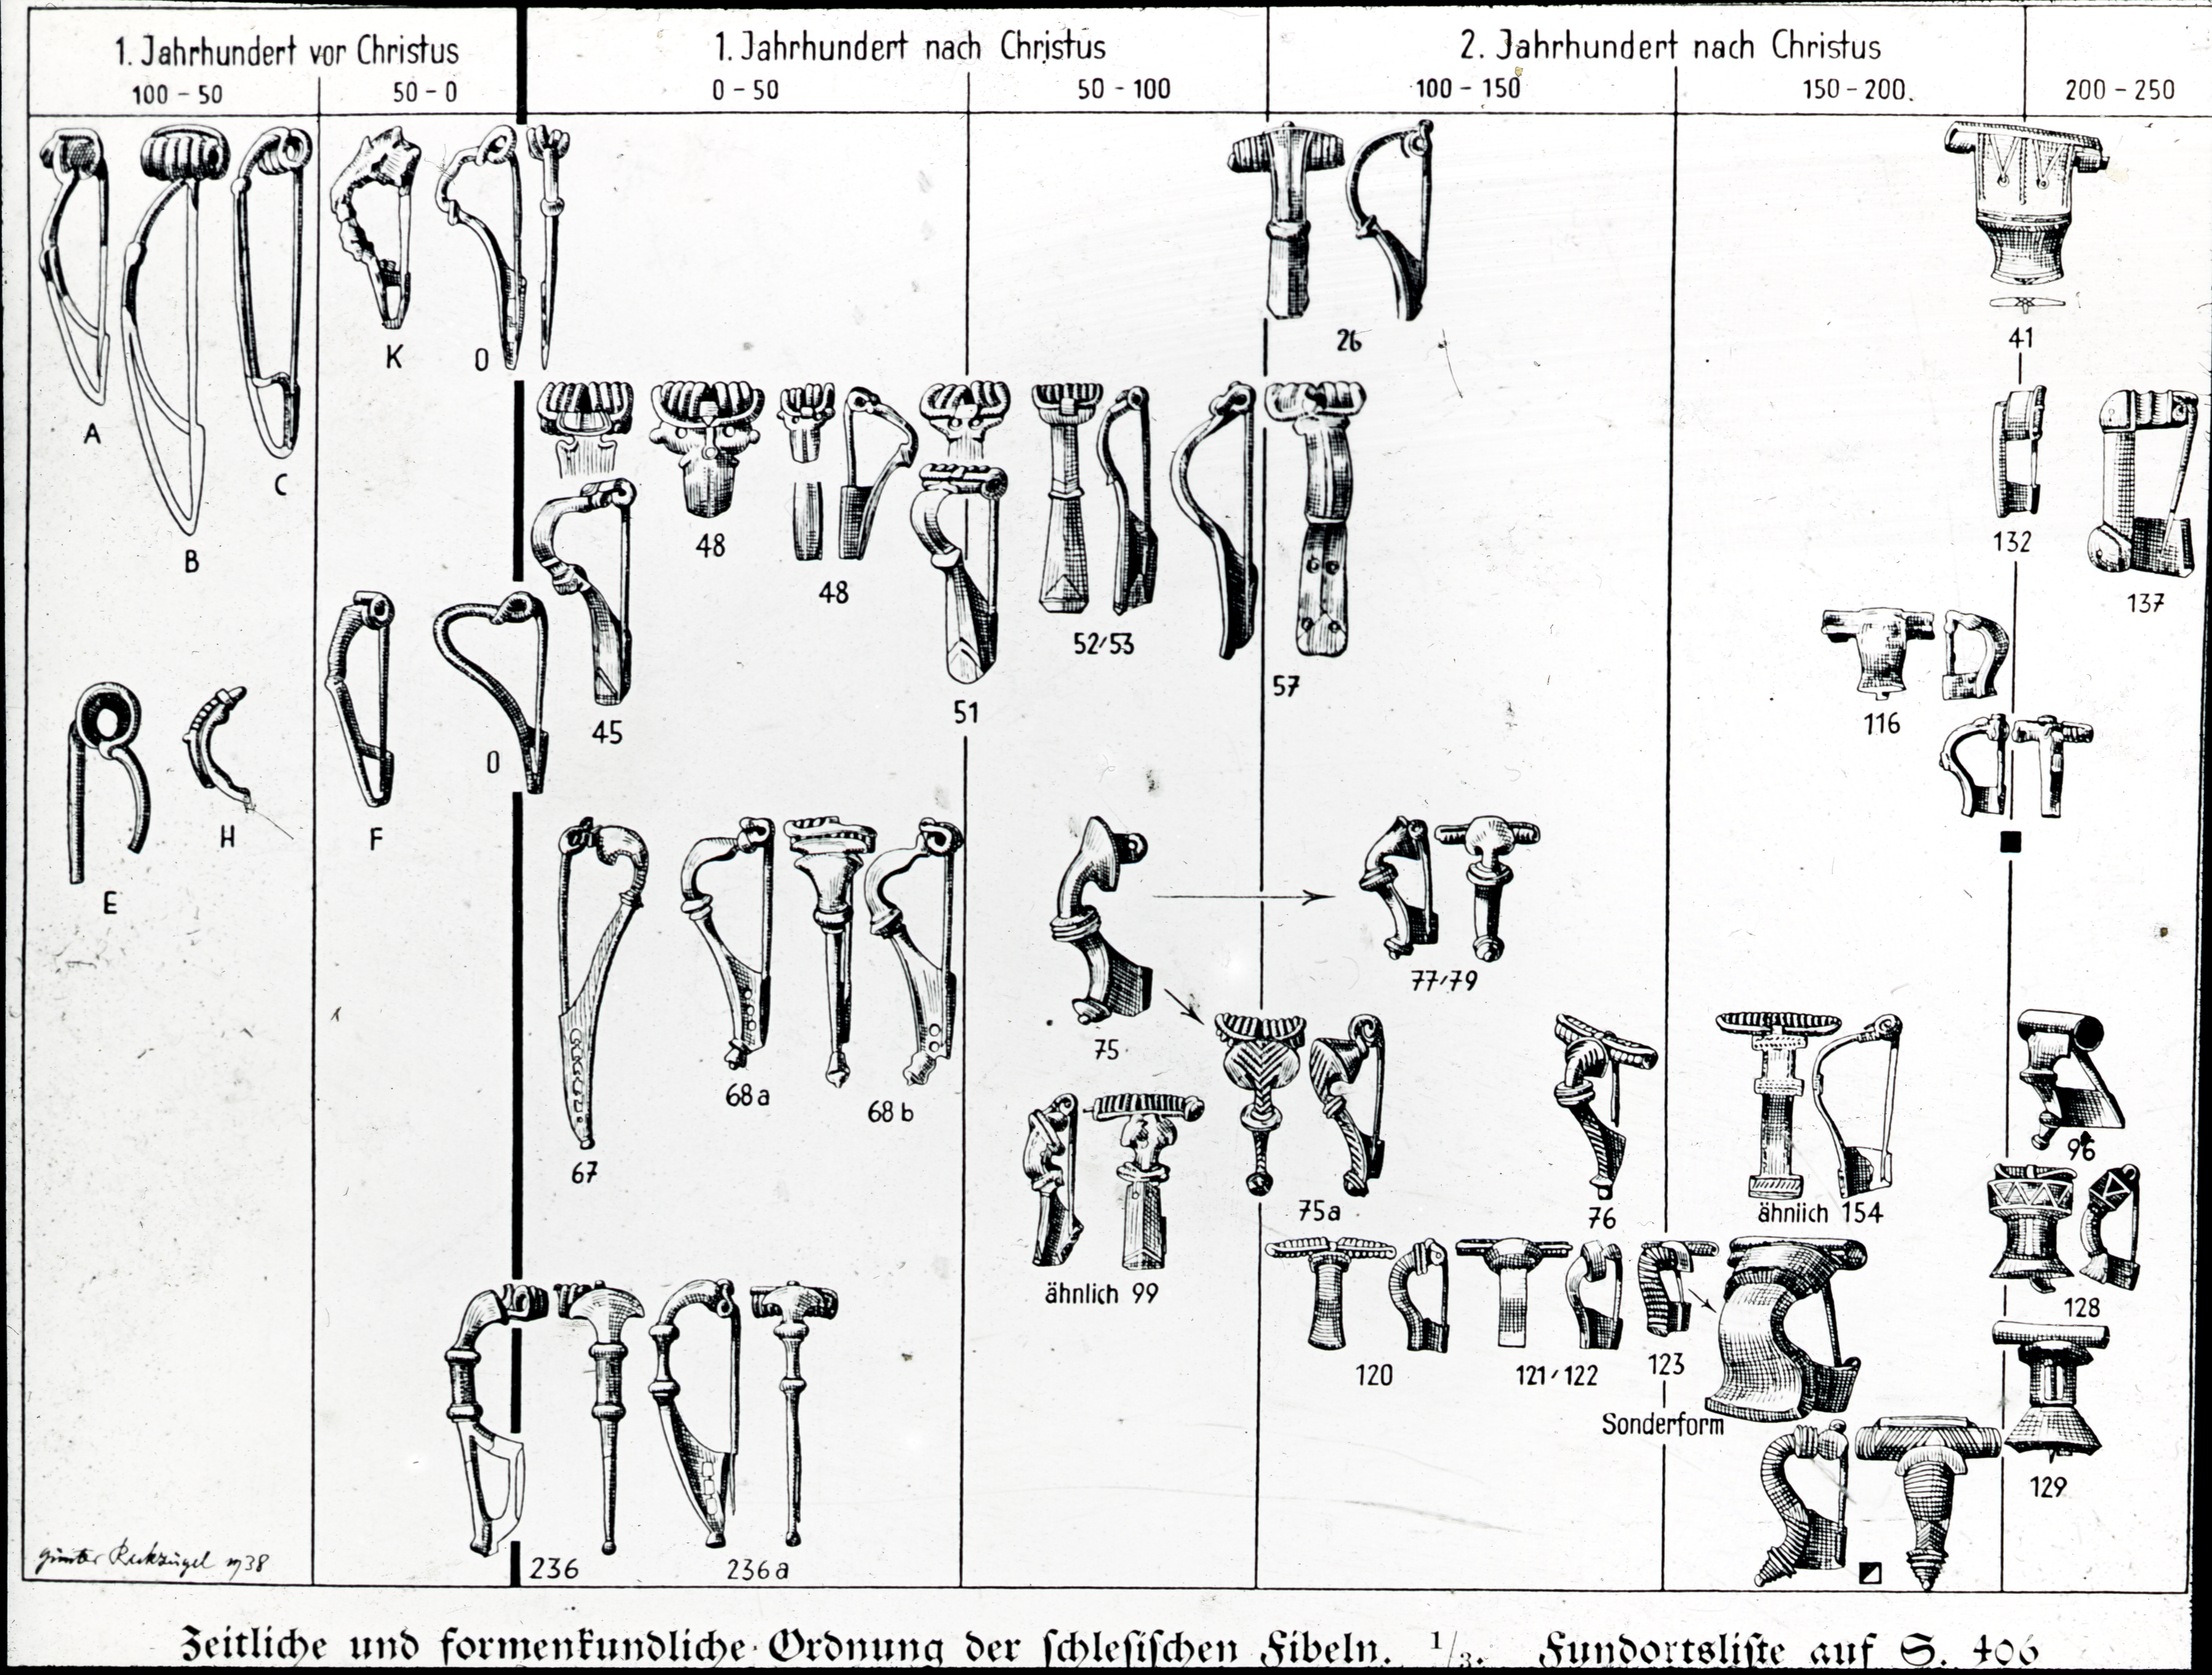 1. Jahrhundert vor Christus
1. Jahrhundert nach Christus
2. Jahrhundert nach Christus
100 - 50
50 - 0
0 - 50
50 - 100
100 - 150
150 - 200.
200 - 250
A
B
C
K
O
26
41
48
48
132
137
52/53
57
51
45
116
O
E
H
F
77/79
75
68a
68b
67
75a
76
ähnlich 154
96
ähnlich 99
128
120
121/122
123
Sonderform
129
236
236a
Günter 1938
Zeitliche und formenkundliche Ordnung der schlesischen Fibeln. 1/3. Fundortsliste auf S. 406